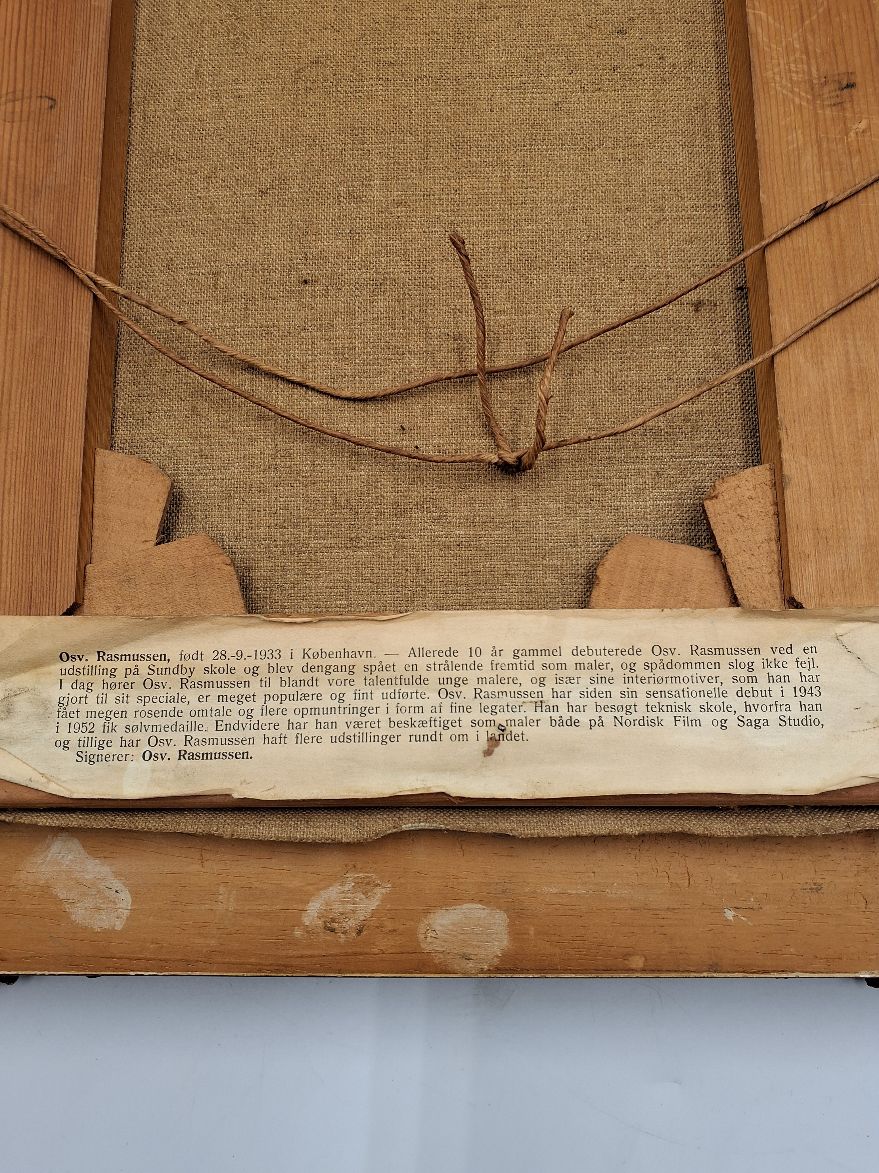 Osv. Rasmussen, født 28.-9.-1933 i København. — Allerede 10 år gammel debuterede Osv. Rasmussen ved en
udstilling på Sundby skole og blev dengang spået en strålende fremtid som maler, og spådommen slog ikke fejl.
I dag hører Osv. Rasmussen til blandt vore talentfulde unge malere, og især sine interiørmotiver, som han har
gjort til sit speciale, er meget populære og fint udførte. Osv. Rasmussen har siden sin sensationelle debut i 1943
fået megen rosende omtale og flere opmuntringer i form af fine legater. Han har besøgt teknisk skole, hvorfra han
i 1952 fik sølvmedaille. Endvidere har han været beskæftiget som maler både på Nordisk Film og Saga Studio,
og tillige har Osv. Rasmussen haft flere udstillinger rundt om i landet.
Signerer: Osv. Rasmussen.